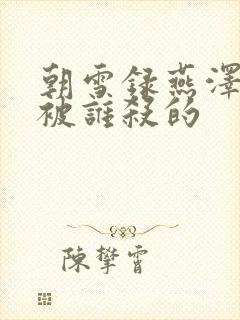 朝雪錄燕澤
被誰殺的
陳攀霄